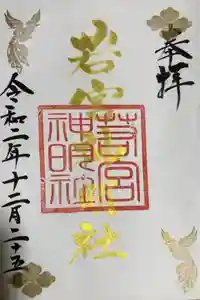 奉拝
若宮神明社
若宮
神明社
令和二年十二月二十五